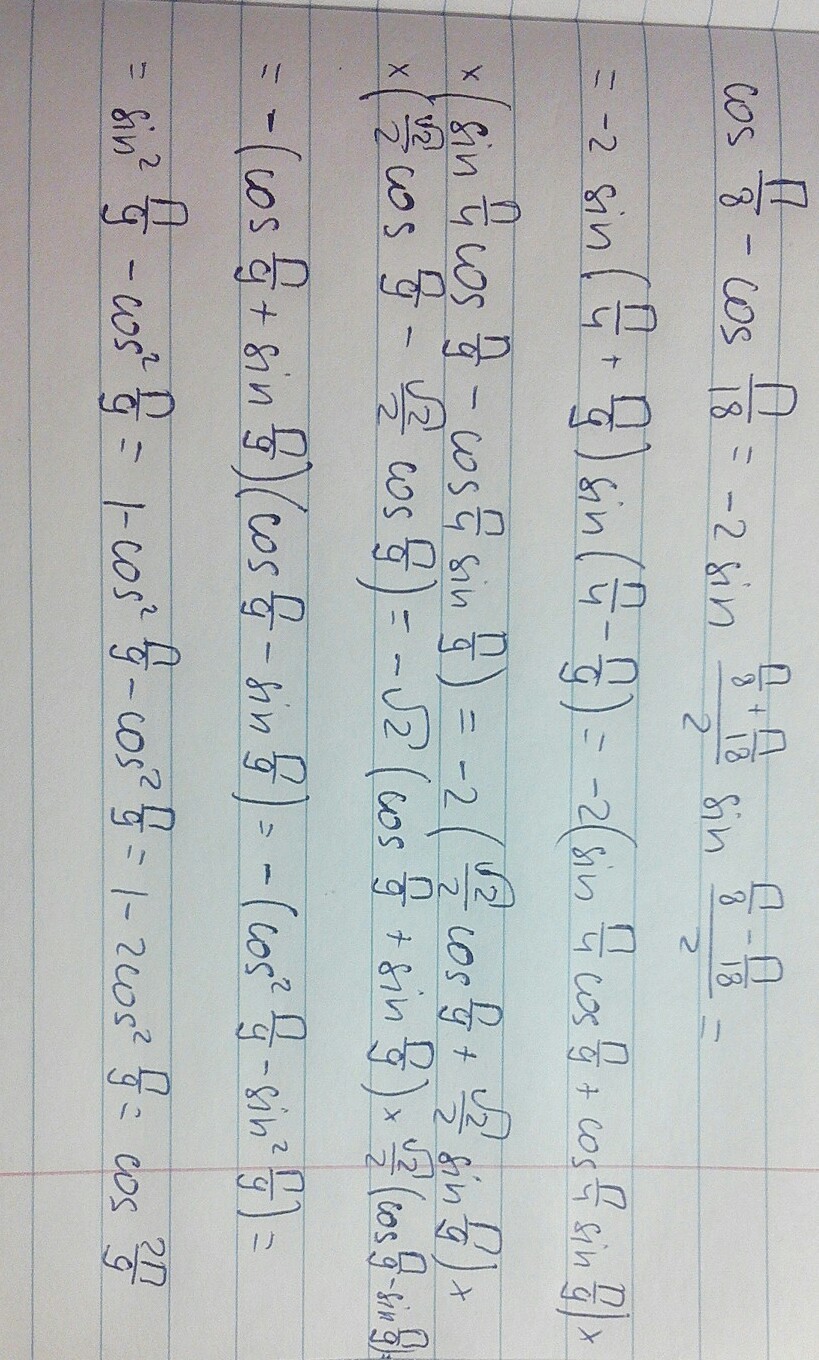 cos π/8 - cos π/18 = -2 sin (π/8 + π/18)/2 sin (π/8 - π/18)/2 =
= -2 sin (π/4 + π/9) sin (π/4 - π/9) = -2(sin π/4 cos π/9 + cos π/4 sin π/9) ×
× (sin π/4 cos π/9 - cos π/4 sin π/9) = -2 (√2/2 cos π/9 + √2/2 sin π/9) ×
× (√2/2 cos π/9 - √2/2 cos π/9) = -√2 (cos π/9 + sin π/9) × √2/2 (cos π/9 - sin π/9) =
= -(cos π/9 + sin π/9)(cos π/9 - sin π/9) = -(cos² π/9 - sin² π/9) =
= sin² π/9 - cos² π/9 = 1 - cos² π/9 - cos² π/9 = 1 - 2cos² π/9 = cos 2π/9